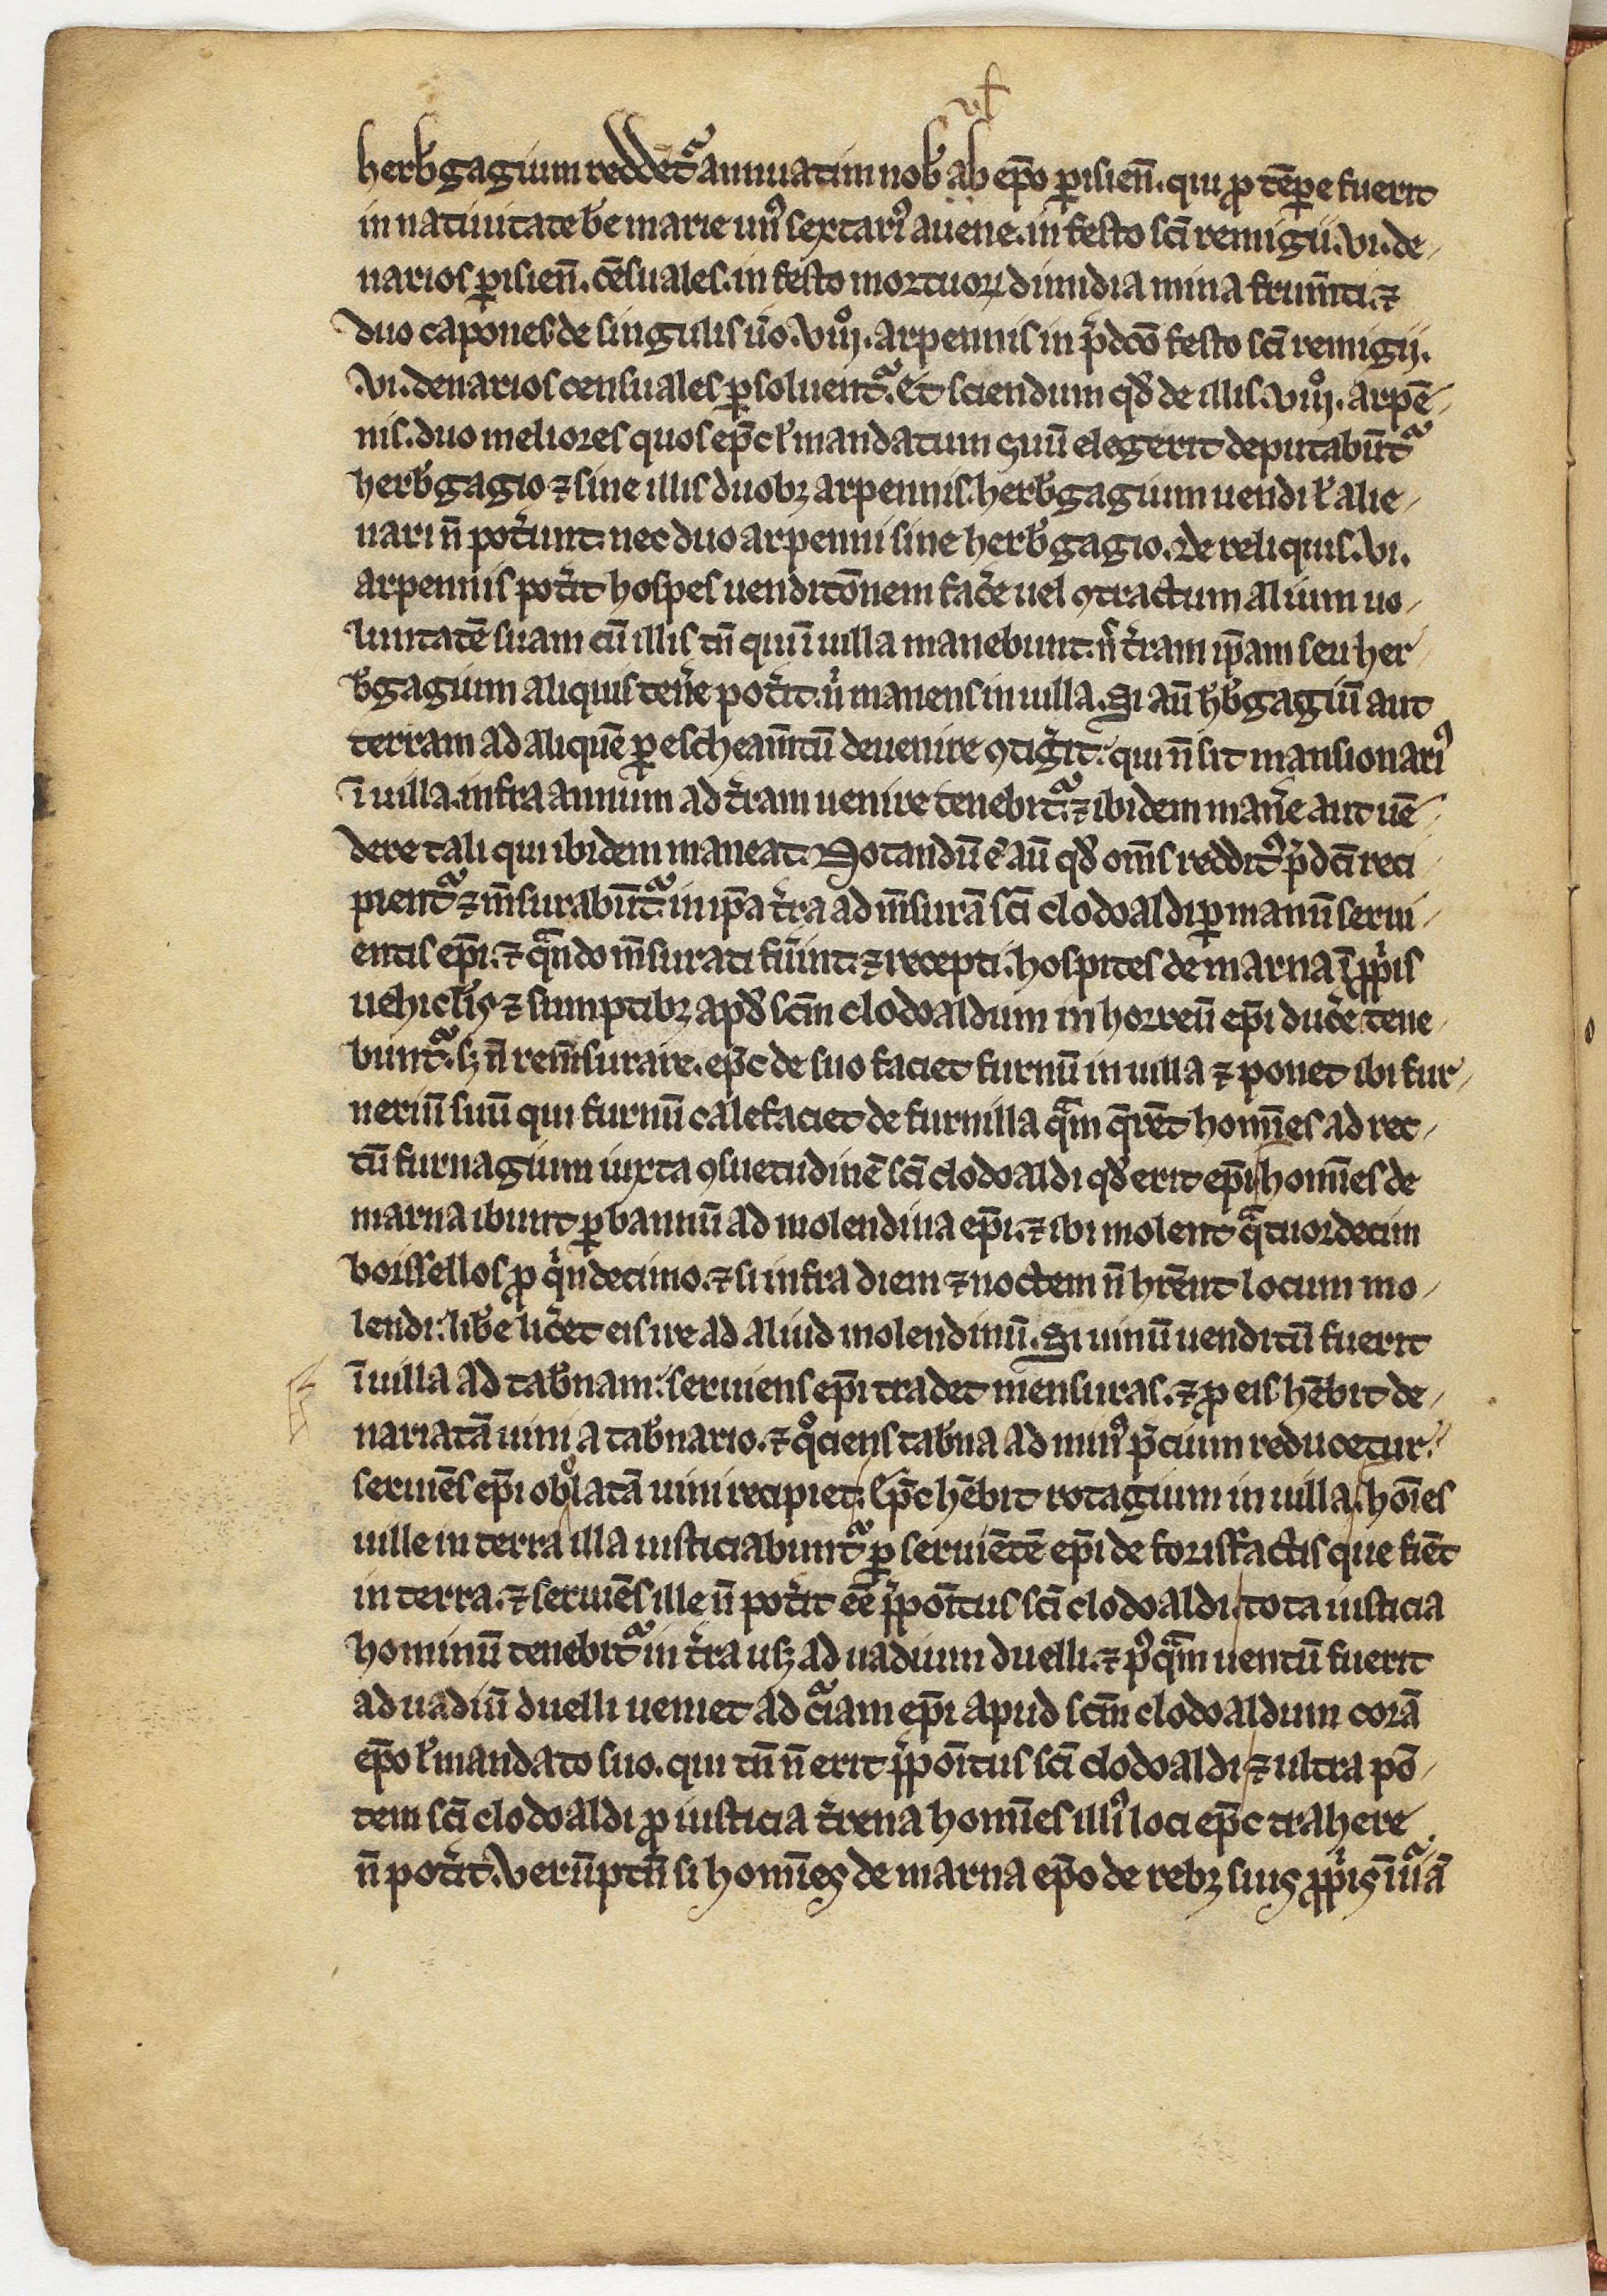 vl'
herb̾gagium reddet᷒ annuatim nob̾ ab ep̄o ꝑisień. qui ꝓ tēꝑe fuerit
in natiuitate be marie unꝰ sextariꝰ auene. in festo sc̄i remigii. vi. de-
narios ꝑisień. cēsuales. in festo mortuoꝝ dimidia mina frum̄ti. ⁊
duo capones de singulis ūo. viiioꝛ. arpennis in p̄dc̄o festo sc̄i remigij.
vi. denarios censuales ꝑsoluent᷒. Et sciendum qd̾ de illis. viiioꝛ. arpē-
nis. duo meliores quos ep̄c ul̾ mandatum suū elegerit deputabūt᷒
herb̾gagio ⁊ sine illis duobꝫ arpennis. herb̾gagium uendi ul̾ alie-
nari n̄ pot̾unt. nec duo arpenni sine herb̾gagio. de reliquis. vi.
arpennis pot̾it hospes uenditōnem fac̾e uel ꝯtractum alium uo-
luntatē suam cū illis tn̄ qui ī uilla manebunt. n̾ t̾ram ip̄am seu her-
b̾gagium aliquis ten̾e pot̾it. n̾ manens in uilla. Si aū h̾b̾gagiū aut
terram ad aliquē ꝑ escheam̄tū deuenire ꝯtig̾it. qui n̄ sit mansionariꝰ
ī uilla. infra annum ad t̾ram uenire tenebit᷒. ⁊ ibidem man̾e aut uē-
dere tali qui ibidem maneat. Notandū ē aū qd̾ om̄s redditꝰ p̄dc̄i reci-
pient᷒ ⁊ m̄surabūt᷒. in ip̄a t̾ra ad m̄surā sc̄i clodoaldi ꝑ manū serui-
entis ep̄i. ⁊ qͣndo m̄surati fu̾int. ⁊ recepti. hospites de marna ī ꝓpͥis
uehicl̾is ⁊ sumptibꝫ apd̾ sc̄m clodoaldum in horreū ep̄i duc̾e tene-
bunt᷒. sꝫ n̄ rem̄surare. ep̄c de suo faciet furnū in uilla ⁊ ponet ibi fur-
neriū suū qui furnū calefaciet de furnilla qͣm q̄rēt homīes ad rec-
tū furnagium iuxta ꝯsuetudinē sc̄i clodoaldi qd̾ erit ep̄i homīes de
marna ibunt ꝑ bannū ad molendina ep̄i. ⁊ ibi molent qͣtuordecim
boissellos ꝓ qͥndecimo. ⁊ si infra diem ⁊ noctem n̄ hr̄ent locum mo-
lendi: lib̾e lic̾et eis ire ad aliud molendinū. Si uinū uenditū fuerit
ī uilla ad tab̾nam: seruiens ep̄i tradet mensuras. ⁊ ꝓ eis hēbit de-
nariatā uini a tab̾nario. ⁊ qͦciens tab̾na ad minꝰ p̄cium reducetur.
seruiēs ep̄i obͦlatā uini recipiet. Ep̄c hēbit rotagium in uilla. hoīes
uille in terra illa iusticiabunt᷒ ꝑ seruiētē ep̄i de forisfactis que fiēt
in terra. ⁊ seruiēs ille n̄ pot̾it eē p̄poītus sc̄i clodoaldi. tota iusticia
hominū tenebit᷒ in t̾ra usꝫ ad uadium duelli. ⁊ pꝰqͣm uentū fuerit
ad uadiū duelli ueniet ad cͣiam ep̄i apud sc̄m clodoaldum corā
ep̄o ul̾ mandato suo. qui tn̄ n̄ erit p̄poītus sc̄i clodoaldi ⁊ ultra pō-
tem sc̄i clodoaldi ꝓ iusticia t̾rena homīes illiꝰ loci ep̄c trahere
n̄ pot̾it. Verūptn̄ si homīes de marna ep̄o de rebꝫ suis ꝓpͥis īiuͣā